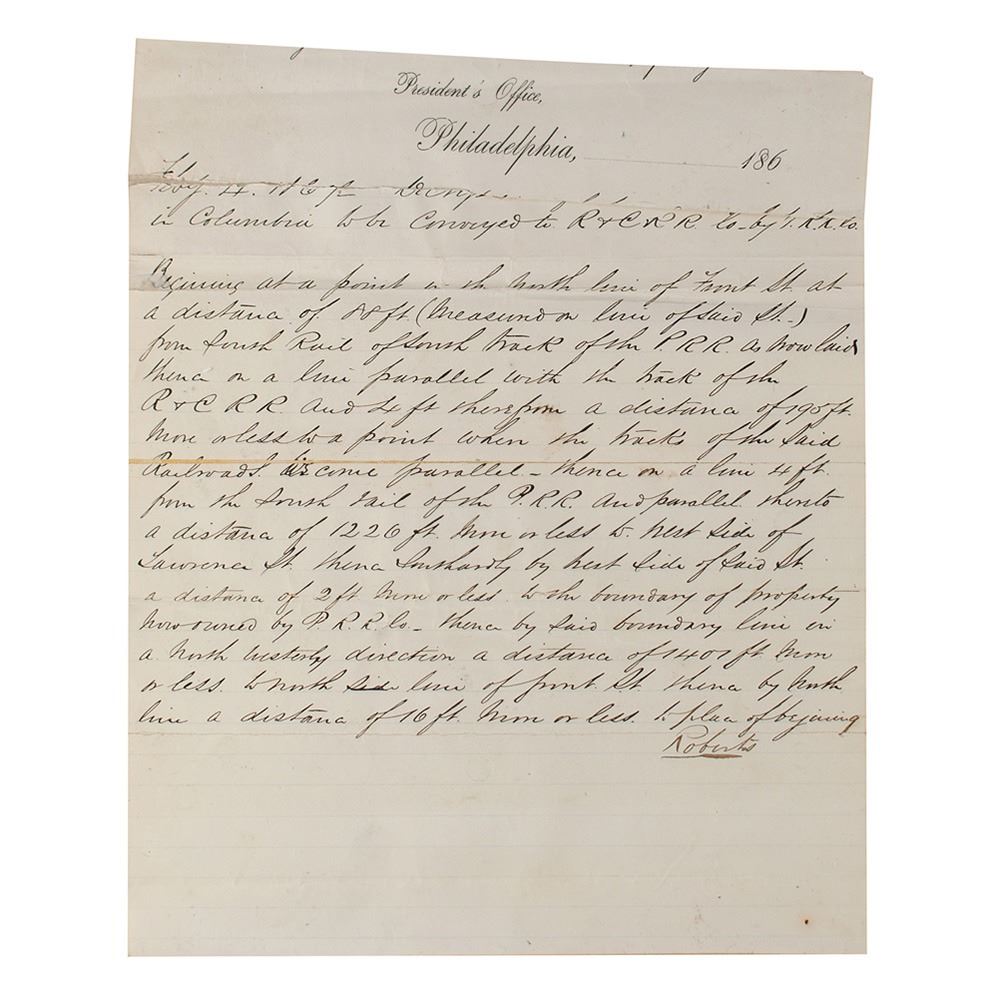 President's Office,
Philadelphia, 186
Feby. 4. 186
in Columbia to be Conveyed to R & C R R. Co. by P. R. R. Co.
Begining at a point in the North line of Front St. at
a distance of 88 ft. (Measured on line of said St.)
from South Rail of South track of the P. R R. as now laid
thence on a line parallel with the track of the
R & C R R. and 4 ft therefrom a distance of 190 ft.
More or less to a point when the tracks of the Said
Railroads come parallel - thence on a line 4 ft.
from the South rail of the P. R R. and parallel thereto
a distance of 1226 ft. More or less to West Side of
Lawrence St. thence Southardly by West Side of Said St.
a distance of 2 ft More or less to the boundary of property
Now owned by P. R. R. Co - thence by Said boundary line in
a North Westerly direction a distance of 1401 ft. More
or less. to North side line of front St. thence by North
line a distance of 16 ft. More or less. to place of begining
Roberts